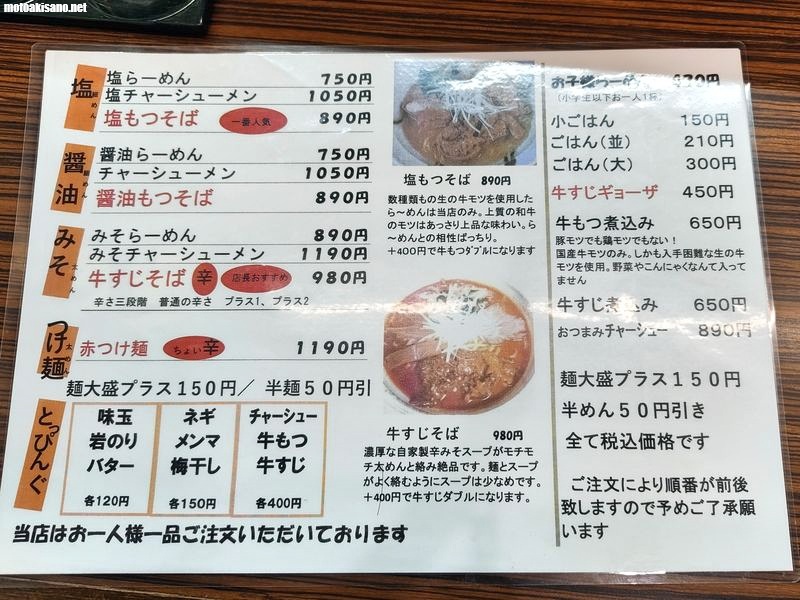 motoakisano.net
塩 細めん
塩らーめん 750円
塩チャーシューメン 1050円
塩もつそば 一番人気 890円
醤油 細めん
醤油らーめん 750円
チャーシューメン 1050円
醤油もつそば 890円
みそ 太めん
みそらーめん 890円
みそチャーシューメン 1190円
牛すじそば 辛 店長おすすめ 980円
辛さ三段階 普通の辛さ プラス1、プラス2
つけ麺 太めん
赤つけ麺 ちょい辛 1190円
麺大盛プラス150円/ 半麺50円引
とっぴんぐ
味玉
岩のり
バター
各120円
ネギ
メンマ
梅干し
各150円
チャーシュー
牛もつ
牛すじ
各400円
当店はお一人様一品ご注文いただいております
塩もつそば 890円
数種類もの生の牛モツを使用した
ら〜めんは当店のみ。上質の和牛
のモツはあっさり上品な味わい。ら
〜めんとの相性ばっちり。
+400円で牛もつダブルになります
牛すじそば 980円
濃厚な自家製辛みそスープがモチモ
チ太めんと絡み絶品です。麺とスープ
がよく絡むようにスープは少なめです。
+400円で牛すじダブルになります。
お子様らーめん 470円
(小学生以下お一人1杯)
小ごはん 150円
ごはん(並) 210円
ごはん(大) 300円
牛すじギョーザ 450円
牛もつ煮込み 650円
豚モツでも鶏モツでもない!
国産牛モツのみ。しかも入手困難な生の牛
モツを使用。野菜やこんにゃくなんて入って
ません
牛すじ煮込み 650円
おつまみチャーシュー 890円
麺大盛プラス150円
半めん50円引き
全て税込価格です
ご注文により順番が前後
致しますので予めご了承願
います